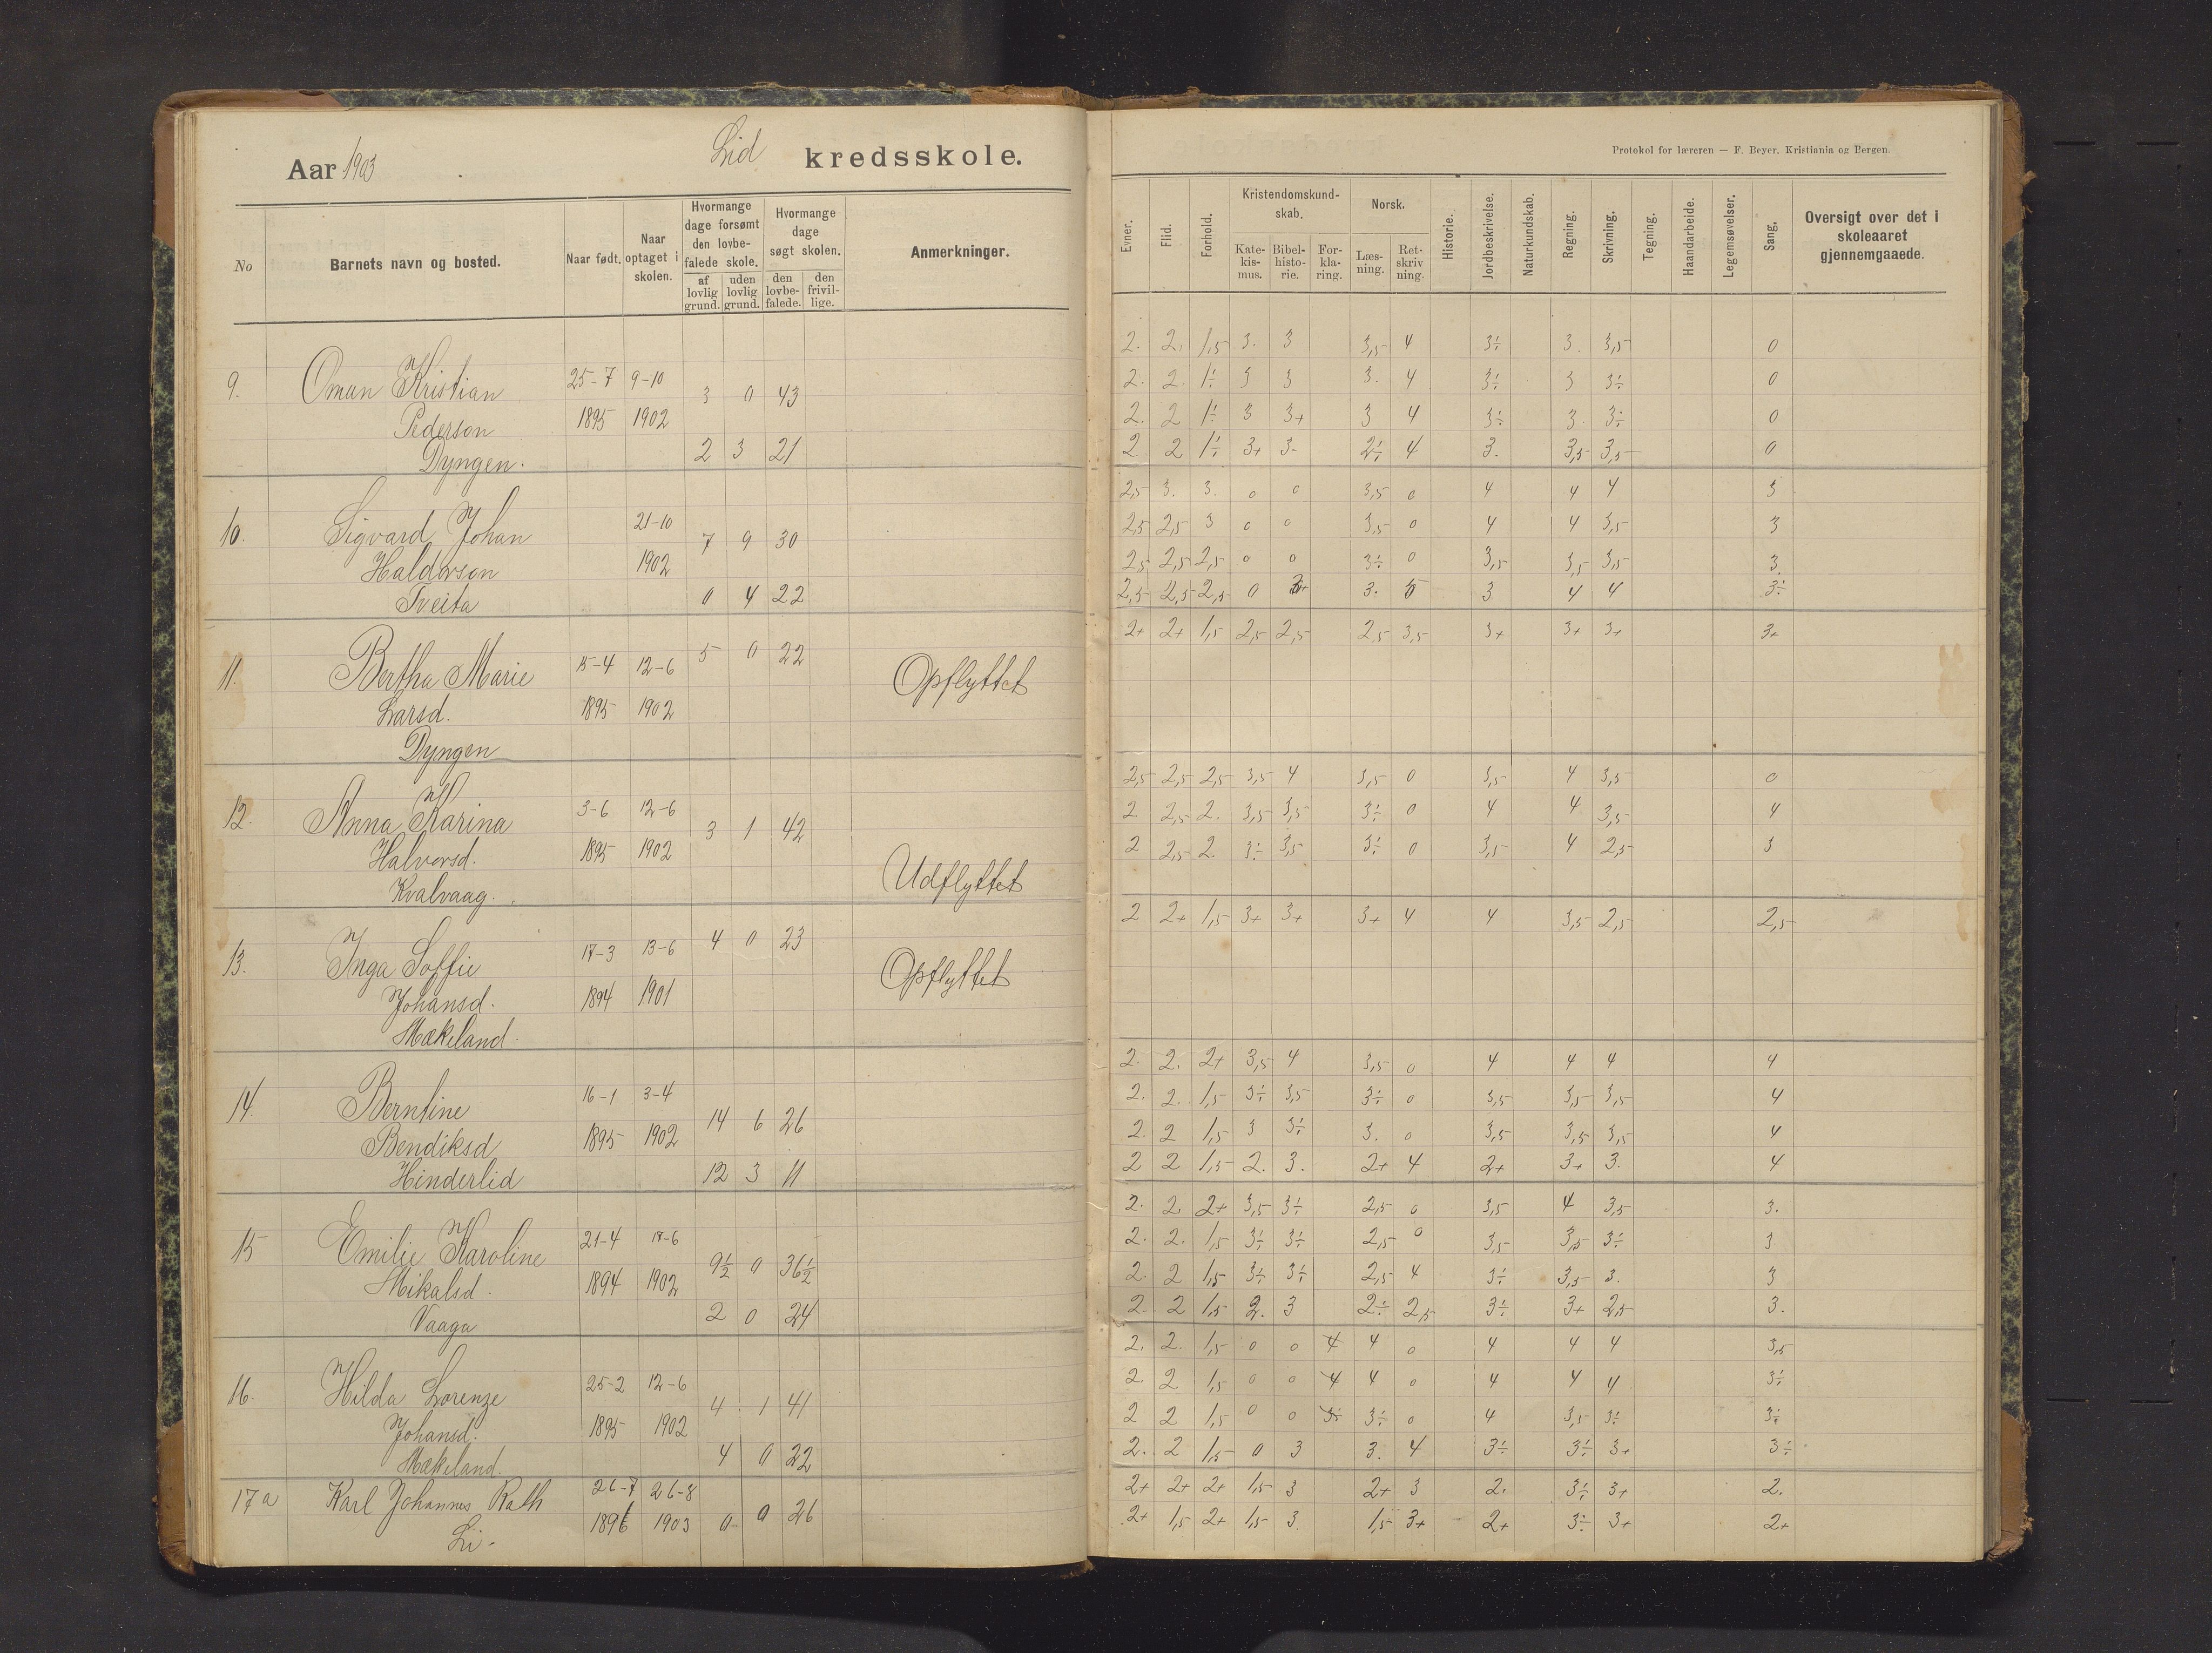 Aar 1903 Lid kredsskole.
Protokol for læreren — F. Beyer, Kristiania og Bergen.
No Barnets navn og bosted. Naar født. Naar optaget i skolen. Hvormange dage forsømt den lovbefalede skole. af lovlig grund. uden lovlig grund. Hvormange dage søgt skolen. den lovbefalede. den frivillige. Anmerkninger.
Evner. Flid. Forhold. Kristendomskundskab. Katekismus. Bibelhistorie. Forklaring. Norsk. Læsning. Retskrivning. Historie. Jordbeskrivelse. Naturkundskab. Regning. Skrivning. Tegning. Haandarbeide. Legemsøvelser. Sang. Oversigt over det i skoleaaret gjennemgaaede.
9. Oman Kristian 25-7 9-10 3 0 43
Pederson 1895 1902
Dyngen. 2 3 21
2. 2. 1,5 3. 3 3,5 4 3÷ 3. 3,5 0
2. 2. 1÷ 3 3 3. 4 3÷ 3 3÷ 0
2. 2 1÷ 3 3+ 3 4 3÷ 3. 3÷ 0
2. 2 1÷ 3+ 3- 2÷ 4 3. 3,5 3,5 0
10. Sigvard Johan 21-10 7 9 30
Halderson 1902
Tveita 0 4 22
2,5 3. 3. 0 0 3,5 0 4 4 4 3
2,5 2,5 3 0 0 3,5 0 4 4 3,5 3
2,5 2,5 2,5 0 0 3÷ 0 3,5 3,5 3,5 3.
2,5 2,5 2,5 0 3. 3 4 4 3÷
11. Bertha Marie 15-4 12-6 5 0 22 Opflyttet
Larsd. 1895 1902
Dyngen
2+ 2+ 1,5 2,5 2,5 2,5 3,5 3+ 3+ 3+ 3+
12. Anna Karina 3-6 12-6 3 1 42
Halvorsd. 1895 1902 Udflyttet
Kvalvaag.
2,5 2,5 2,5 3,5 4 3,5 0 3,5 4 3,5 0
2 2,5 2. 3,5 3,5 3÷ 0 4 4 3,5 4
2 2,5 2. 3÷ 3,5 3÷ 0 3,5 4 2,5 3
13. Inga Soffie 17-3 13-6 4 0 23 Opflyttet
Johansd. 1894 1901
Mækeland.
2 2+ 1,5 3+ 3+ 3+ 4 4 3,5 2,5 2,5
14. Berntine 16-1 3-4 14 6 26
Bendiksd 1895 1902
Hinderlid 12 3 11
2. 2. 2+ 3,5 4 3,5 0 4 4 4 4
2. 2. 1,5 3÷ 3,5 3÷ 0 3,5 3,5 3,5 4
2. 2 1,5 3 3÷ 3. 0 3,5 3,5 3,5 4
2 2 1,5 2. 3. 2+ 4 2+ 3+ 3. 4
15 Emilie Karoline 21-4 17-6 9½ 0 36½
Mikalsd. 1894 1902
Vaaga 2 0 24
2. 2 2+ 3,5 3÷ 2,5 0 3,5 4 3,5 3.
2. 2. 1,5 3÷ 3÷ 2,5 0 3,5 3,5 3÷ 3
2. 2 1,5 3÷ 3÷ 2,5 4 3÷ 3,5 3. 3
2. 2 1,5 2. 3 2÷ 2,5 3÷ 3+ 2,5 3.
16. Hilda Lorenze 25-2 12-6 4 1 41
Johansd. 1895 1902
Mækeland. 4 0 22
2. 2. 1,5 0 0 4 4 0 4 4 4 3,5
2. 2 1,5 0 0 4 4 0 4 4 4 3÷
2 2 1,5 0 0 3÷ 3÷ 0 4 3,5 3÷ 3÷
2. 2 1,5 0 3 3. 4 3÷ 3÷ 3+ 3÷
17a Karl Johannes Rath 26-7 26-8
1896 1903 0 0 26
Li.
2+ 2+ 2+ 1,5 3 2+ 3 2. 3÷ 3+ 2.
2+ 1,5 2+ 1,5 3. 1,5 3+ 2+ 3÷ 3+ 2+